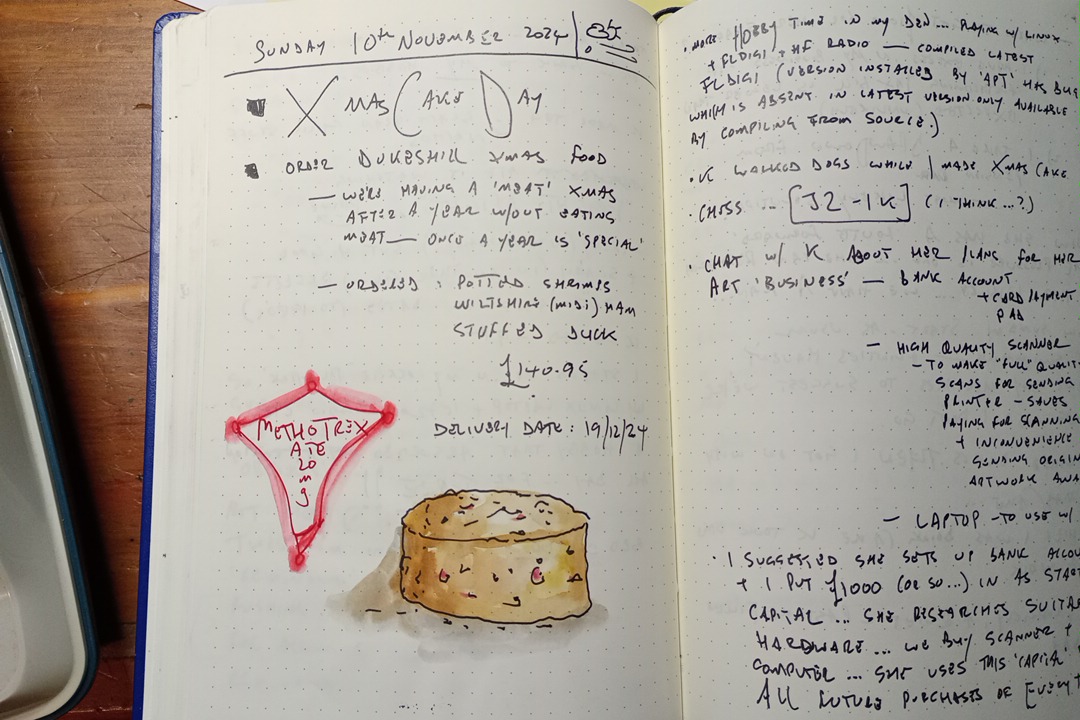 SUNDAY 10th NOVEMBER 2024
XMAS CAKE DAY
ORDER DUKESHILL XMAS FOOD
— WE'RE HAVING A 'MEAT' XMAS
AFTER A YEAR W/OUT EATING
MEAT — ONCE A YEAR IS 'SPECIAL'
— ORDERED : POTTED SHRIMPS
WILTSHIRE (MIDI) HAM
STUFFED DUCK
£140.95
DELIVERY DATE: 19/12/24
METHOTREX
ATE
20
m
g
· MORE HOBBY TIME IN MY DEN... PLAYING W/ LINUX
+ FLDIGI + HF RADIO — COMPILED LATEST
FLDIGI (VERSION INSTALLED BY 'APT' HAS BUG
WHICH IS ABSENT IN LATEST VERSION ONLY AVAILABLE
BY COMPILING FROM SOURCE.)
· K WALKED DOGS WHILE I MADE XMAS CAKE
· CHESS ... [J2 - 1K] (I THINK...?)
· CHAT W/ K ABOUT HER PLANS FOR HER
ART 'BUSINESS' — BANK ACCOUNT
+ CARD PAYMENT
PAD
— HIGH QUALITY SCANNER
- TO MAKE "FULL" QUALIT
SCANS FOR SENDING
PRINTER - SAVES
PAYING FOR SCANNING
+ INCONVENIENCE
SENDING ORIGIN
ARTWORK AWA
— LAPTOP - TO USE W/
· I SUGGESTED SHE SETS UP BANK ACCOU
+ I PUT £1000 (OR SO...) IN AS START
CAPITAL ... SHE RESEARCHES SUITA
HARDWARE ... WE BUY SCANNER +
COMPUTER ... SHE USES THIS 'CAPITAL'
ALL FUTURE PURCHASES OF [EVERYT